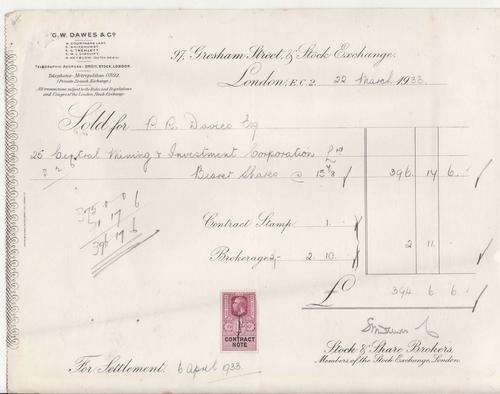 G. W. DAWES & Co
TELEGRAPHIC ADDRESS: DROIT, STOCK, LONDON.
Telephone: Metropolitan
(Private Branch Exchange)
All transactions subject to the Rules and Regulations
and Usages of the London Stock Exchange
37, Gresham Street, & Stock Exchange.
London, E.C.2. 22 March 1933.
Sold for P. B. Davies Esq
25 Central Mining & Investment Corporation
Bearer Shares @ 396. 14. 6.
Contract Stamp 1.
2 11.
Brokerage 2/- 2. 10.
£ 394 6. 6.
CONTRACT
NOTE
Stock & Share Brokers.
Members of the Stock Exchange, London.
For Settlement 6 April 1933